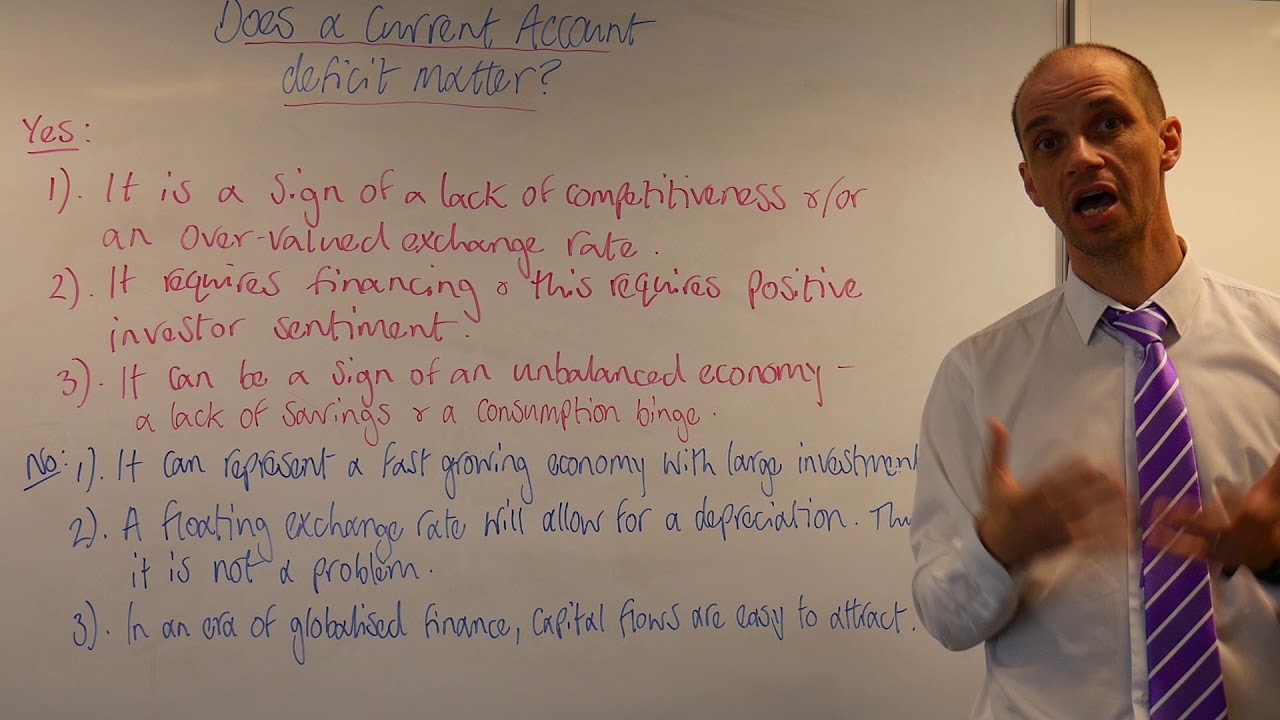 Does a Current Account
deficit matter?
Yes:
1). It is a sign of a lack of competitiveness &/or
an over-valued exchange rate.
2). It requires financing & this requires positive
investor sentiment.
3). It can be a sign of an unbalanced economy –
a lack of savings & a consumption binge.
No: 1). It can represent a fast growing economy with large investment
2). A floating exchange rate will allow for a depreciation.
it is not a problem.
3). In an era of globalised finance, capital flows are easy to attract.